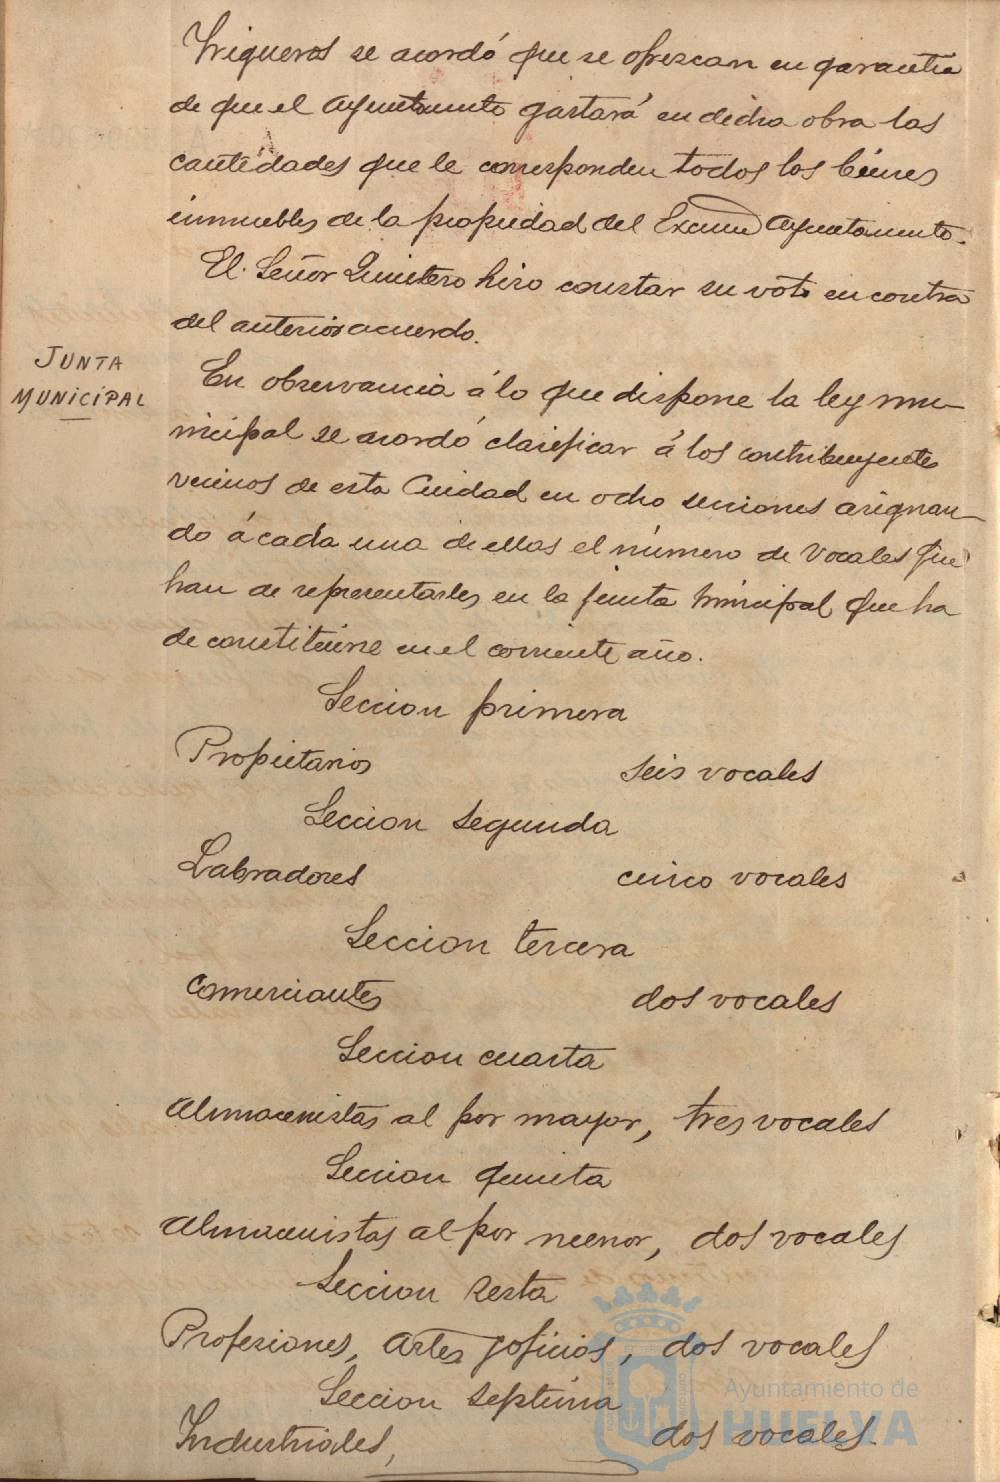 Trigueros se acordó que se ofrezcan en garantia
de que el Ayuntamiento gastará en dicha obra las
cantidades que le corresponden todos los bienes
inmuebles de la propiedad del Excmo Ayuntamiento.
El Señor Quintero hizo constar su voto en contra
del anterior acuerdo.
JUNTA
MUNICIPAL
En observancia á lo que dispone la ley mu-
nicipal se acordó clasificar á los contribuyentes
vecinos de esta Ciudad en ocho secciones asignan-
do á cada una de ellas el número de vocales que
han de representarles en la junta municipal que ha
de constituirse en el corriente año.
Seccion primera
Propietarios seis vocales
Seccion segunda
Labradores cinco vocales
Seccion tercera
Comerciantes dos vocales
Seccion cuarta
Almacenistas al por mayor, tres vocales
Seccion quinta
Almacenistas al por menor, dos vocales
Seccion sesta
Profesiones, artes y oficios, dos vocales
Seccion septima
Industriales, dos vocales.
Ayuntamiento de
HUELVA